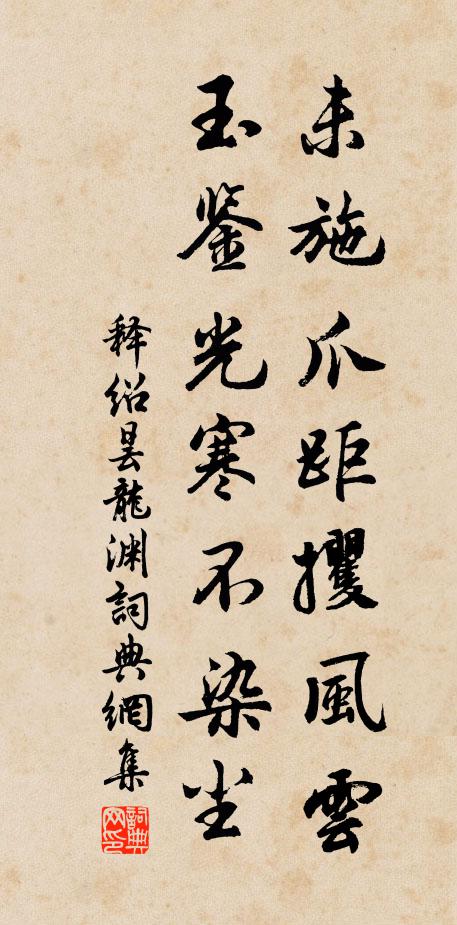 未施爪距攫風雲
玉鉴光寒不染尘
释绍昙龍渊詞典網集
詞典网印